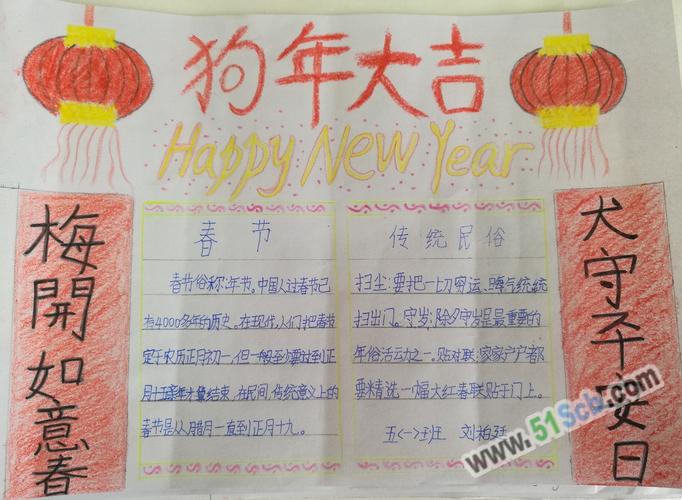 狗年大吉
Happy New Year
梅開如意春
春节
春节俗称:年节。中国人过春节已
有4000多年的历史。在现代,人们把春节
定于农历正月初一,但一般至少要过到正
月十五 结束,在民间,传统意义上的
春节是从腊月一直到正月十九。
传统民俗
扫尘:要把一切穷运、晦气统统
扫出门。守岁:除夕守岁是最重要的
年俗活动之一。贴对联:家家户户都
要精选一幅大红春联贴于门上。
五<一>班 刘柏廷
犬守平安日
www.51Scb.com